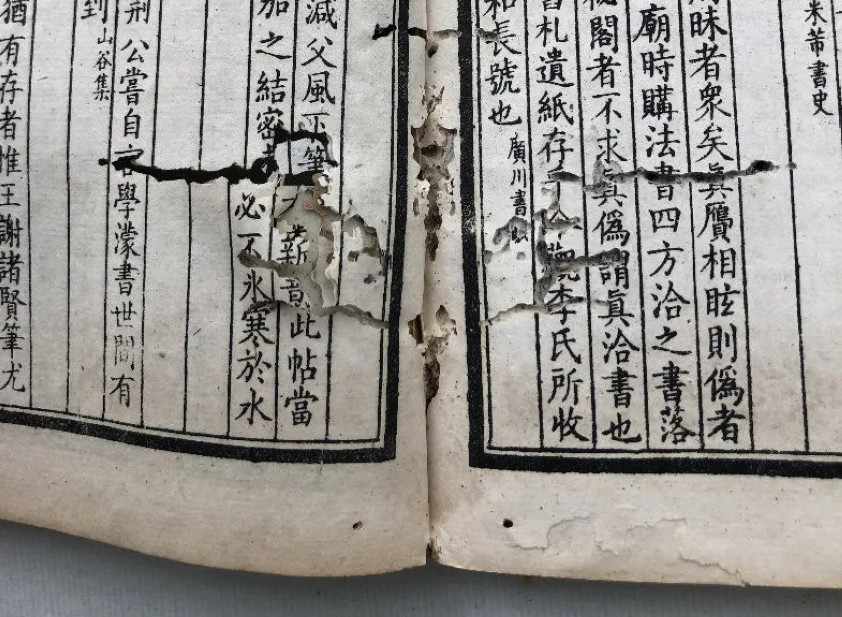 米芾書史
昧者衆矣眞贗相眩則偽者
廟時購法書四方洽之書落
閣者不求眞偽謂眞洽書也
書札遺紙存于李氏所收
和長號也 廣川書
減父風下筆新意此帖當
加之結密必不氷寒於水
荊公嘗自言學濛書世間有
到 山谷集
猶有存者惟王謝諸賢筆尤